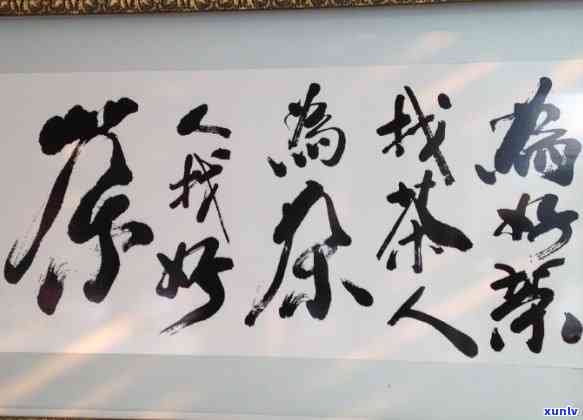 為好茶
找茶人
為茶
人找好
茶
xunlv